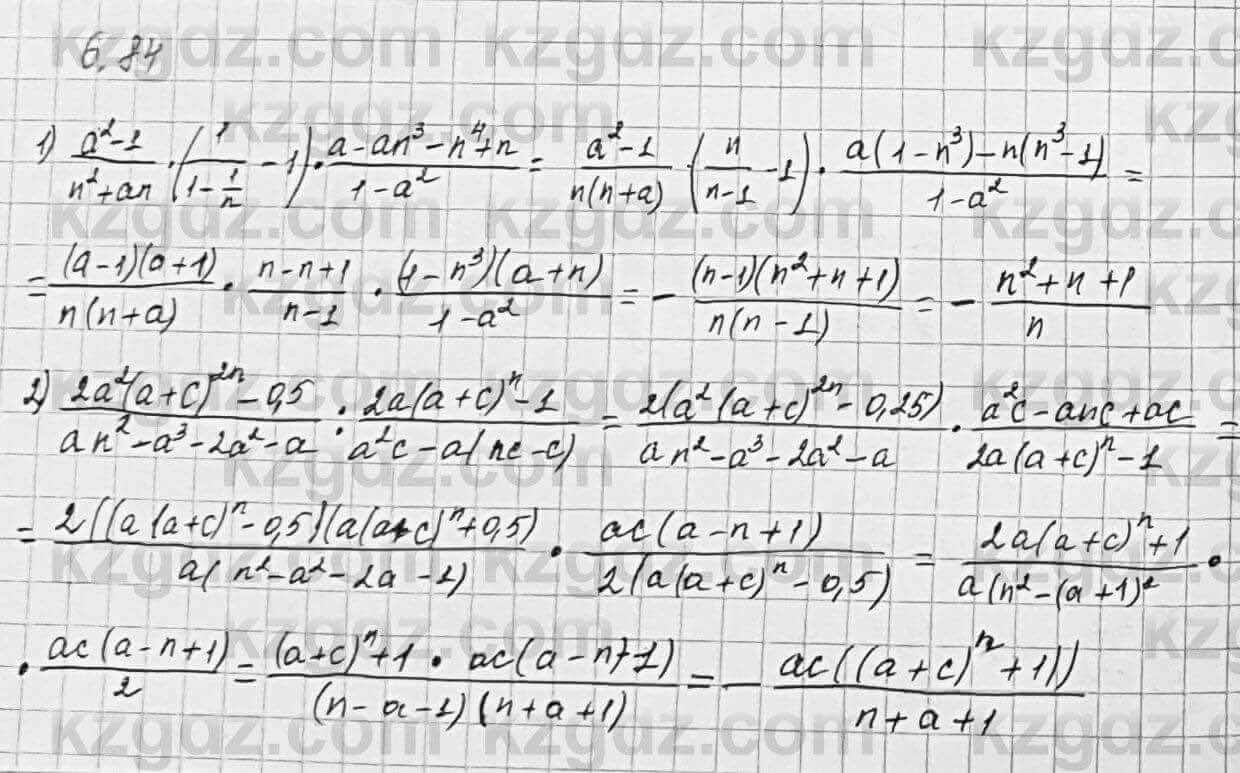 6.84
1) (a²-1)/(n²+an) · (1/(1-1/n) - 1) · (a-an³-n⁴+n)/(1-a²) = (a²-1)/(n(n+a)) · (n/(n-1) - 1) · (a(1-n³)-n(n³-1))/(1-a²) =
= ((a-1)(a+1))/(n(n+a)) · (n-n+1)/(n-1) · ((1-n³)(a+n))/(1-a²) = - ((n-1)(n²+n+1))/(n(n-1)) = - (n²+n+1)/n
2) (2a²(a+c)²ⁿ-0,5)/(an²-a³-2a²-a) : (2a(a+c)ⁿ-1)/(a²c-a(nc-c)) = (2(a²(a+c)²ⁿ-0,25))/(an²-a³-2a²-a) · (a²c-anc+ac)/(2a(a+c)ⁿ-1) =
= (2((a(a+c)ⁿ-0,5)(a(a+c)ⁿ+0,5))/(a(n²-a²-2a-1)) · (ac(a-n+1))/(2(a(a+c)ⁿ-0,5)) = (2a(a+c)ⁿ+1)/(a(n²-(a+1)²) ·
· (ac(a-n+1))/2 = ((a+c)ⁿ+1 · ac(a-n+1))/((n-a-1)(n+a+1)) = - (ac((a+c)ⁿ+1))/(n+a+1)
kzgdz.com